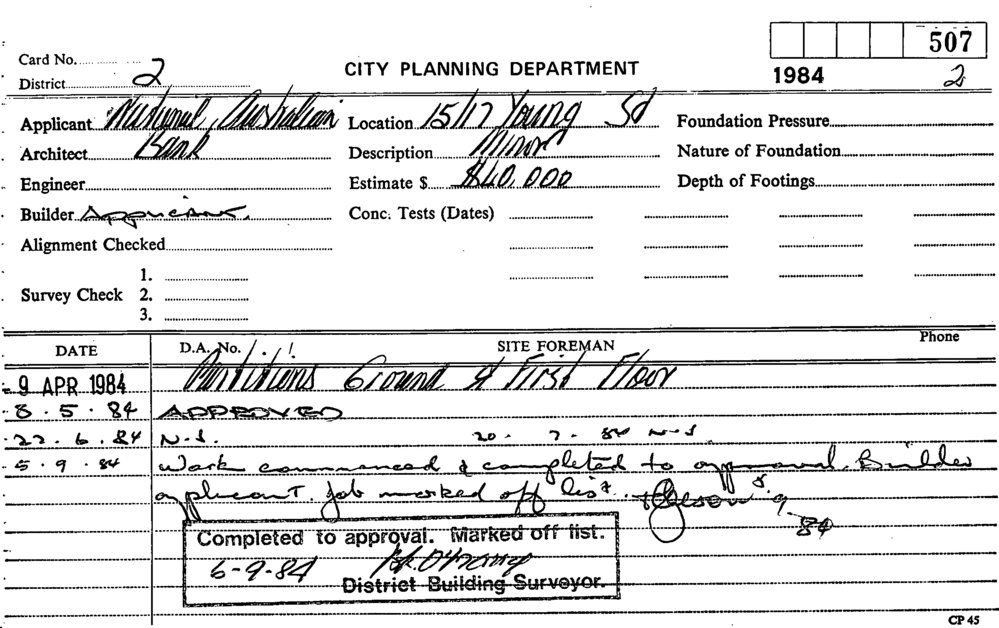 507
Card No.
CITY PLANNING DEPARTMENT
1984 2
District 2
Applicant National Australian Location 15/17 Young St Foundation Pressure
Architect Bank Description Minor Nature of Foundation
Engineer Estimate $ $40,000 Depth of Footings
Builder Applicant. Conc. Tests (Dates)
Alignment Checked
1.
Survey Check 2.
3.
DATE D.A. No. SITE FOREMAN Phone
9 APR 1984 Partitions Ground & First Floor
8.5.84 APPROVED
22.6.84 N.S. 20.7.84 N.S.
5.9.84 Work commenced & completed to approval. Builder
applicant. Job marked off list. 5.9.84
Completed to approval. Marked off list.
6-9-84
District Building Surveyor.
CP 45